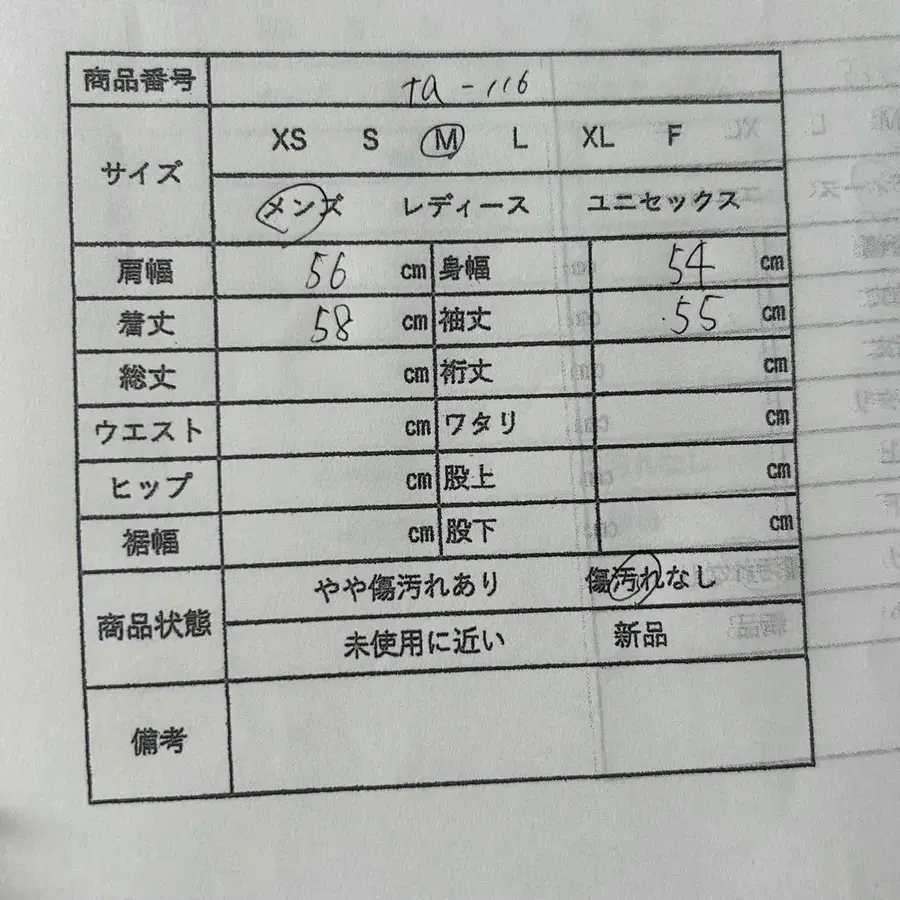 商品番号 ta-116
サイズ XS S M L XL F
メンズ レディース ユニセックス
肩幅 56 cm 身幅 54 cm
着丈 58 cm 袖丈 55 cm
総丈 cm 裄丈 cm
ウエスト cm ワタリ cm
ヒップ cm 股上 cm
裾幅 cm 股下 cm
商品状態 やや傷汚れあり 傷汚れなし
未使用に近い 新品
備考